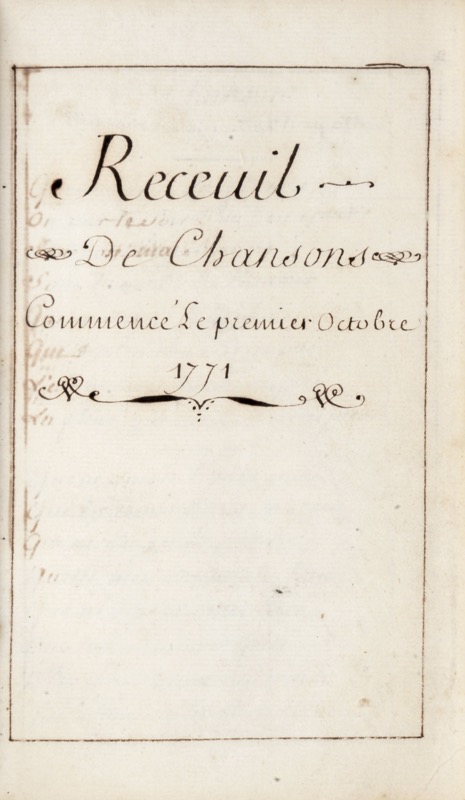 Receuil
De Chansons
Commencé Le premier Octobre
1771